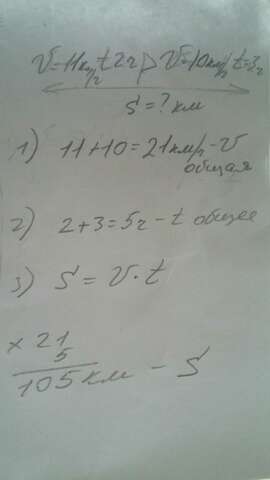 V=11км/ч t2ч V=10км/ч t=3ч
S=? км
1) 11+10=21км/ч-V
общая
2) 2+3=5ч-t общее
3) S=V·t
× 21
5
105км - S